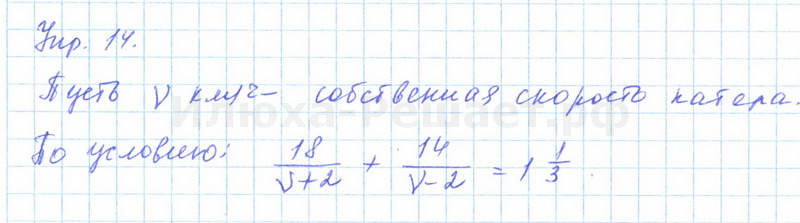 Упр. 14.
Пусть v км/ч – собственная скорость катера.
Илюха-Решает.рф
По условию: 18/(v+2) + 14/(v-2) = 1 1/3